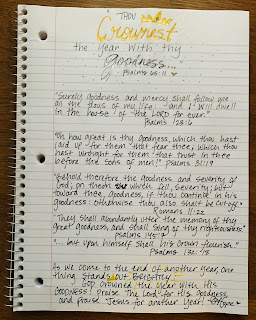 THOU
Crownest
the year with thy
Goodness..."
Psalms 65:11
"Surely goodness and mercy shall follow me
all the days of my life: and I will dwell
in the house of the LORD for ever."
Psalms 23:6
"Oh how great is thy goodness, which thou hast
laid up for them that fear thee; which thou
hast wrought for them that trust in thee
before the sons of men!" Psalms 31:19
"Behold therefore the goodness and severity of
God: on them which fell, severity; but
toward thee, goodness, if thou continue in his
goodness: otherwise thou also shalt be cut off."
Romans 11:22
"They shall abundantly utter the memory of thy
great goodness, and shall sing of thy righteousness."
Psalms 145:7
"...but upon himself shall his crown flourish."
Psalms 132:18
As we come to the end of another year, one
thing stands out brightly:
GOD crowned the year with His
Goodness! Praise the Lord for His goodness,
and praise Jesus for another year!